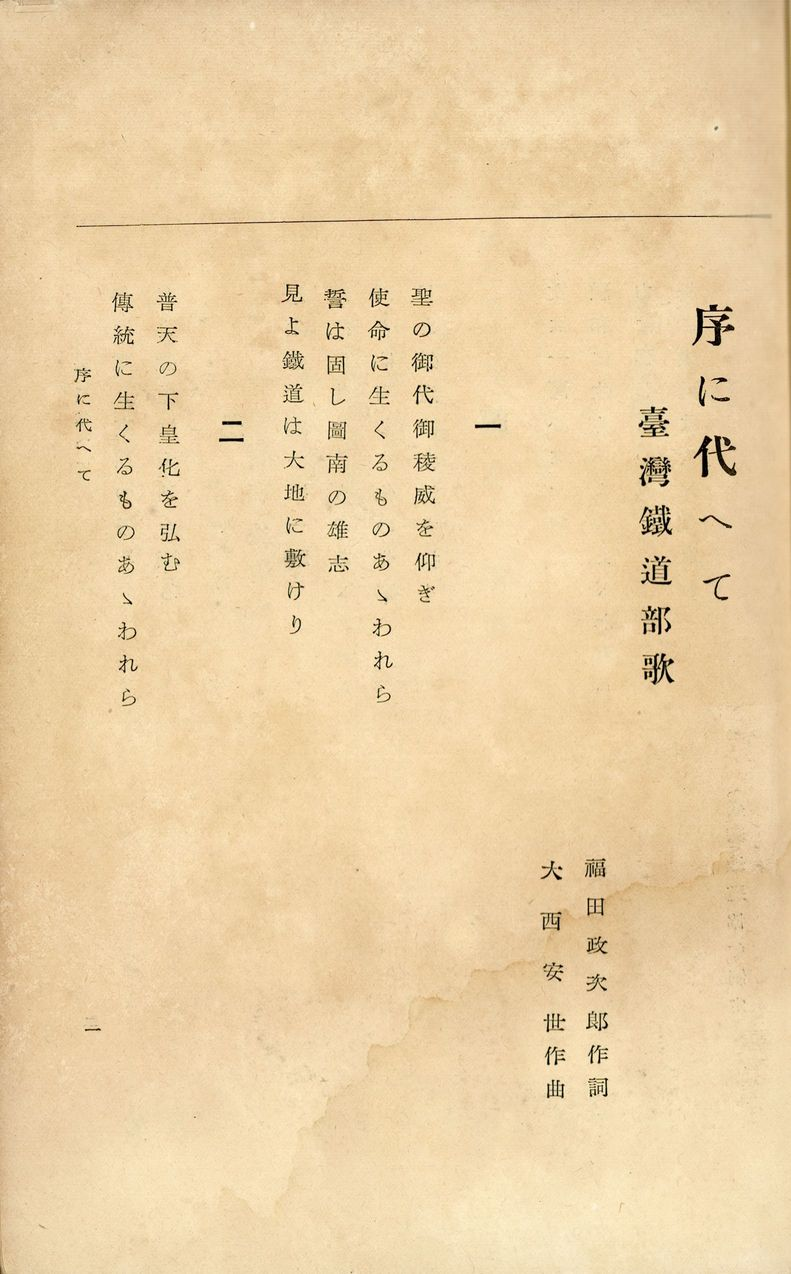 序に代へて
臺灣鐵道部歌
福田政次郎作詞
大西安世作曲
一
聖の御代御稜威を仰ぎ
使命に生くるものあゝわれら
誓は固し圖南の雄志
見よ鐵道は大地に敷けり
二
普天の下皇化を弘む
傳統に生くるものあゝわれら
序に代へて
一